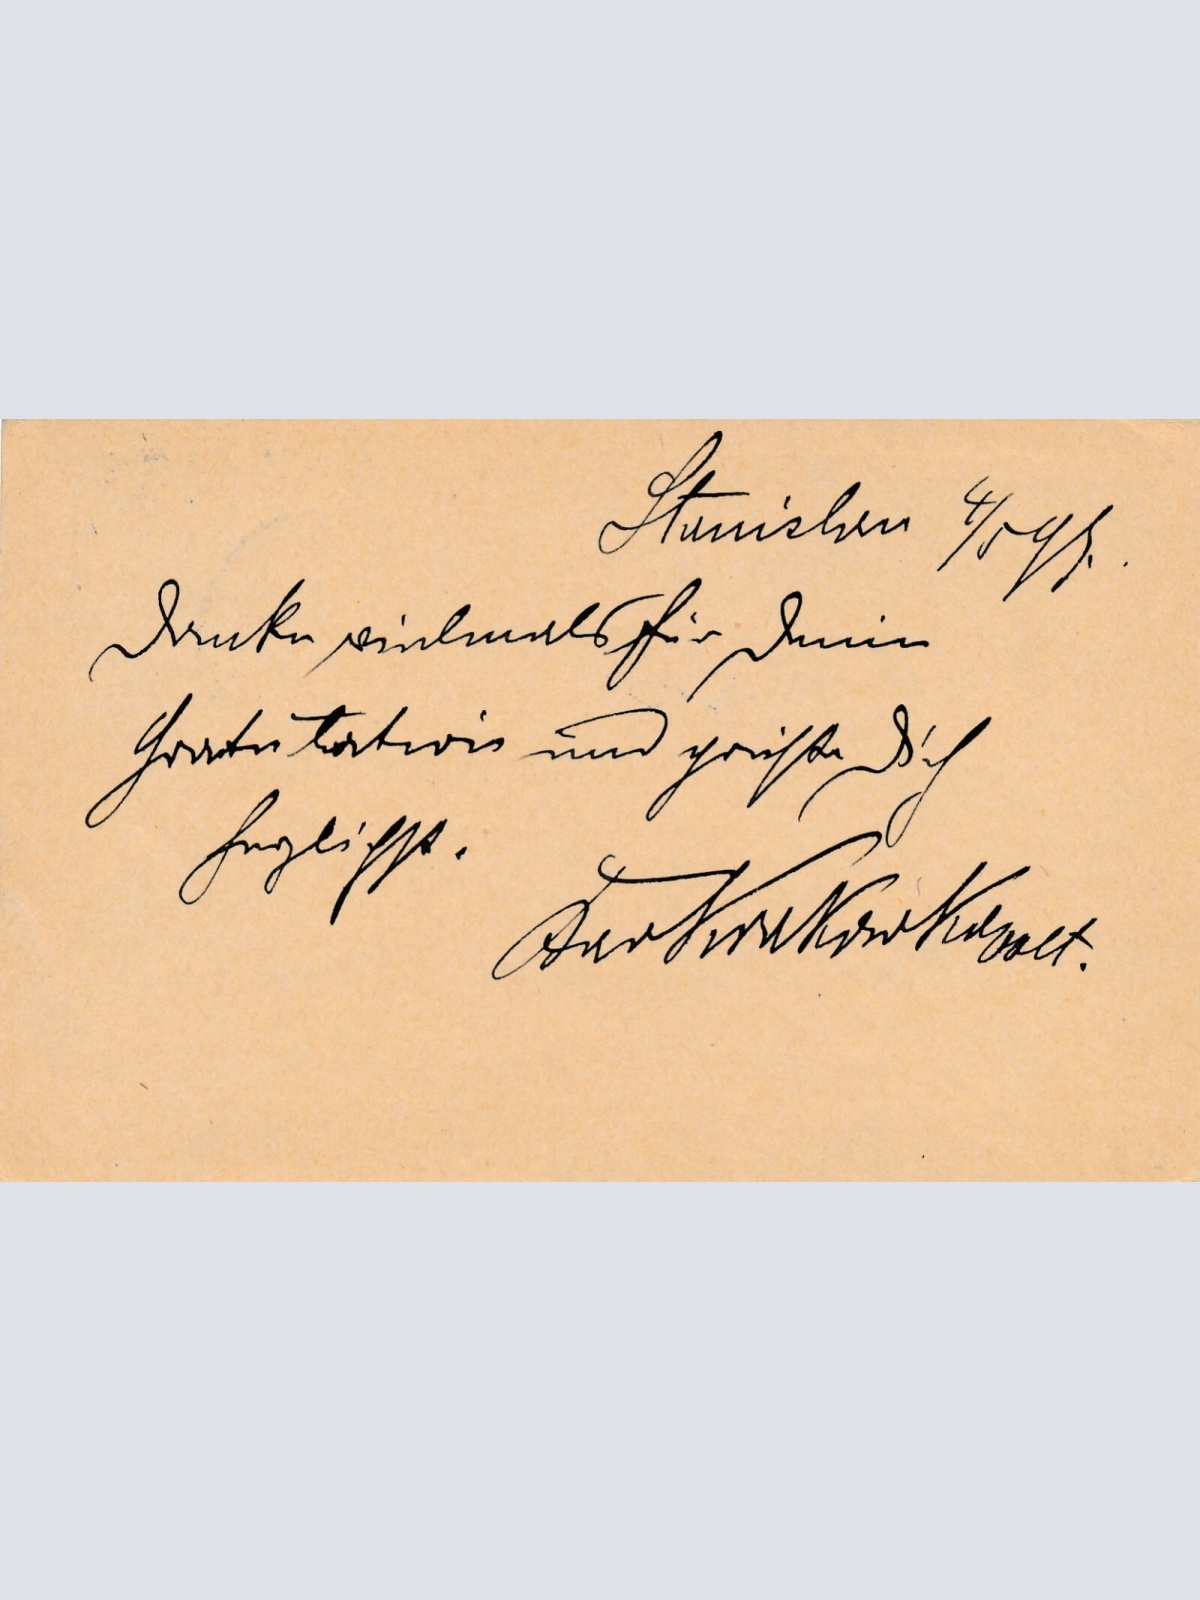 Stanislau 4/5 98.
Danke vielmals für Deine
Gratulation und grüße Dich
herzlichst.